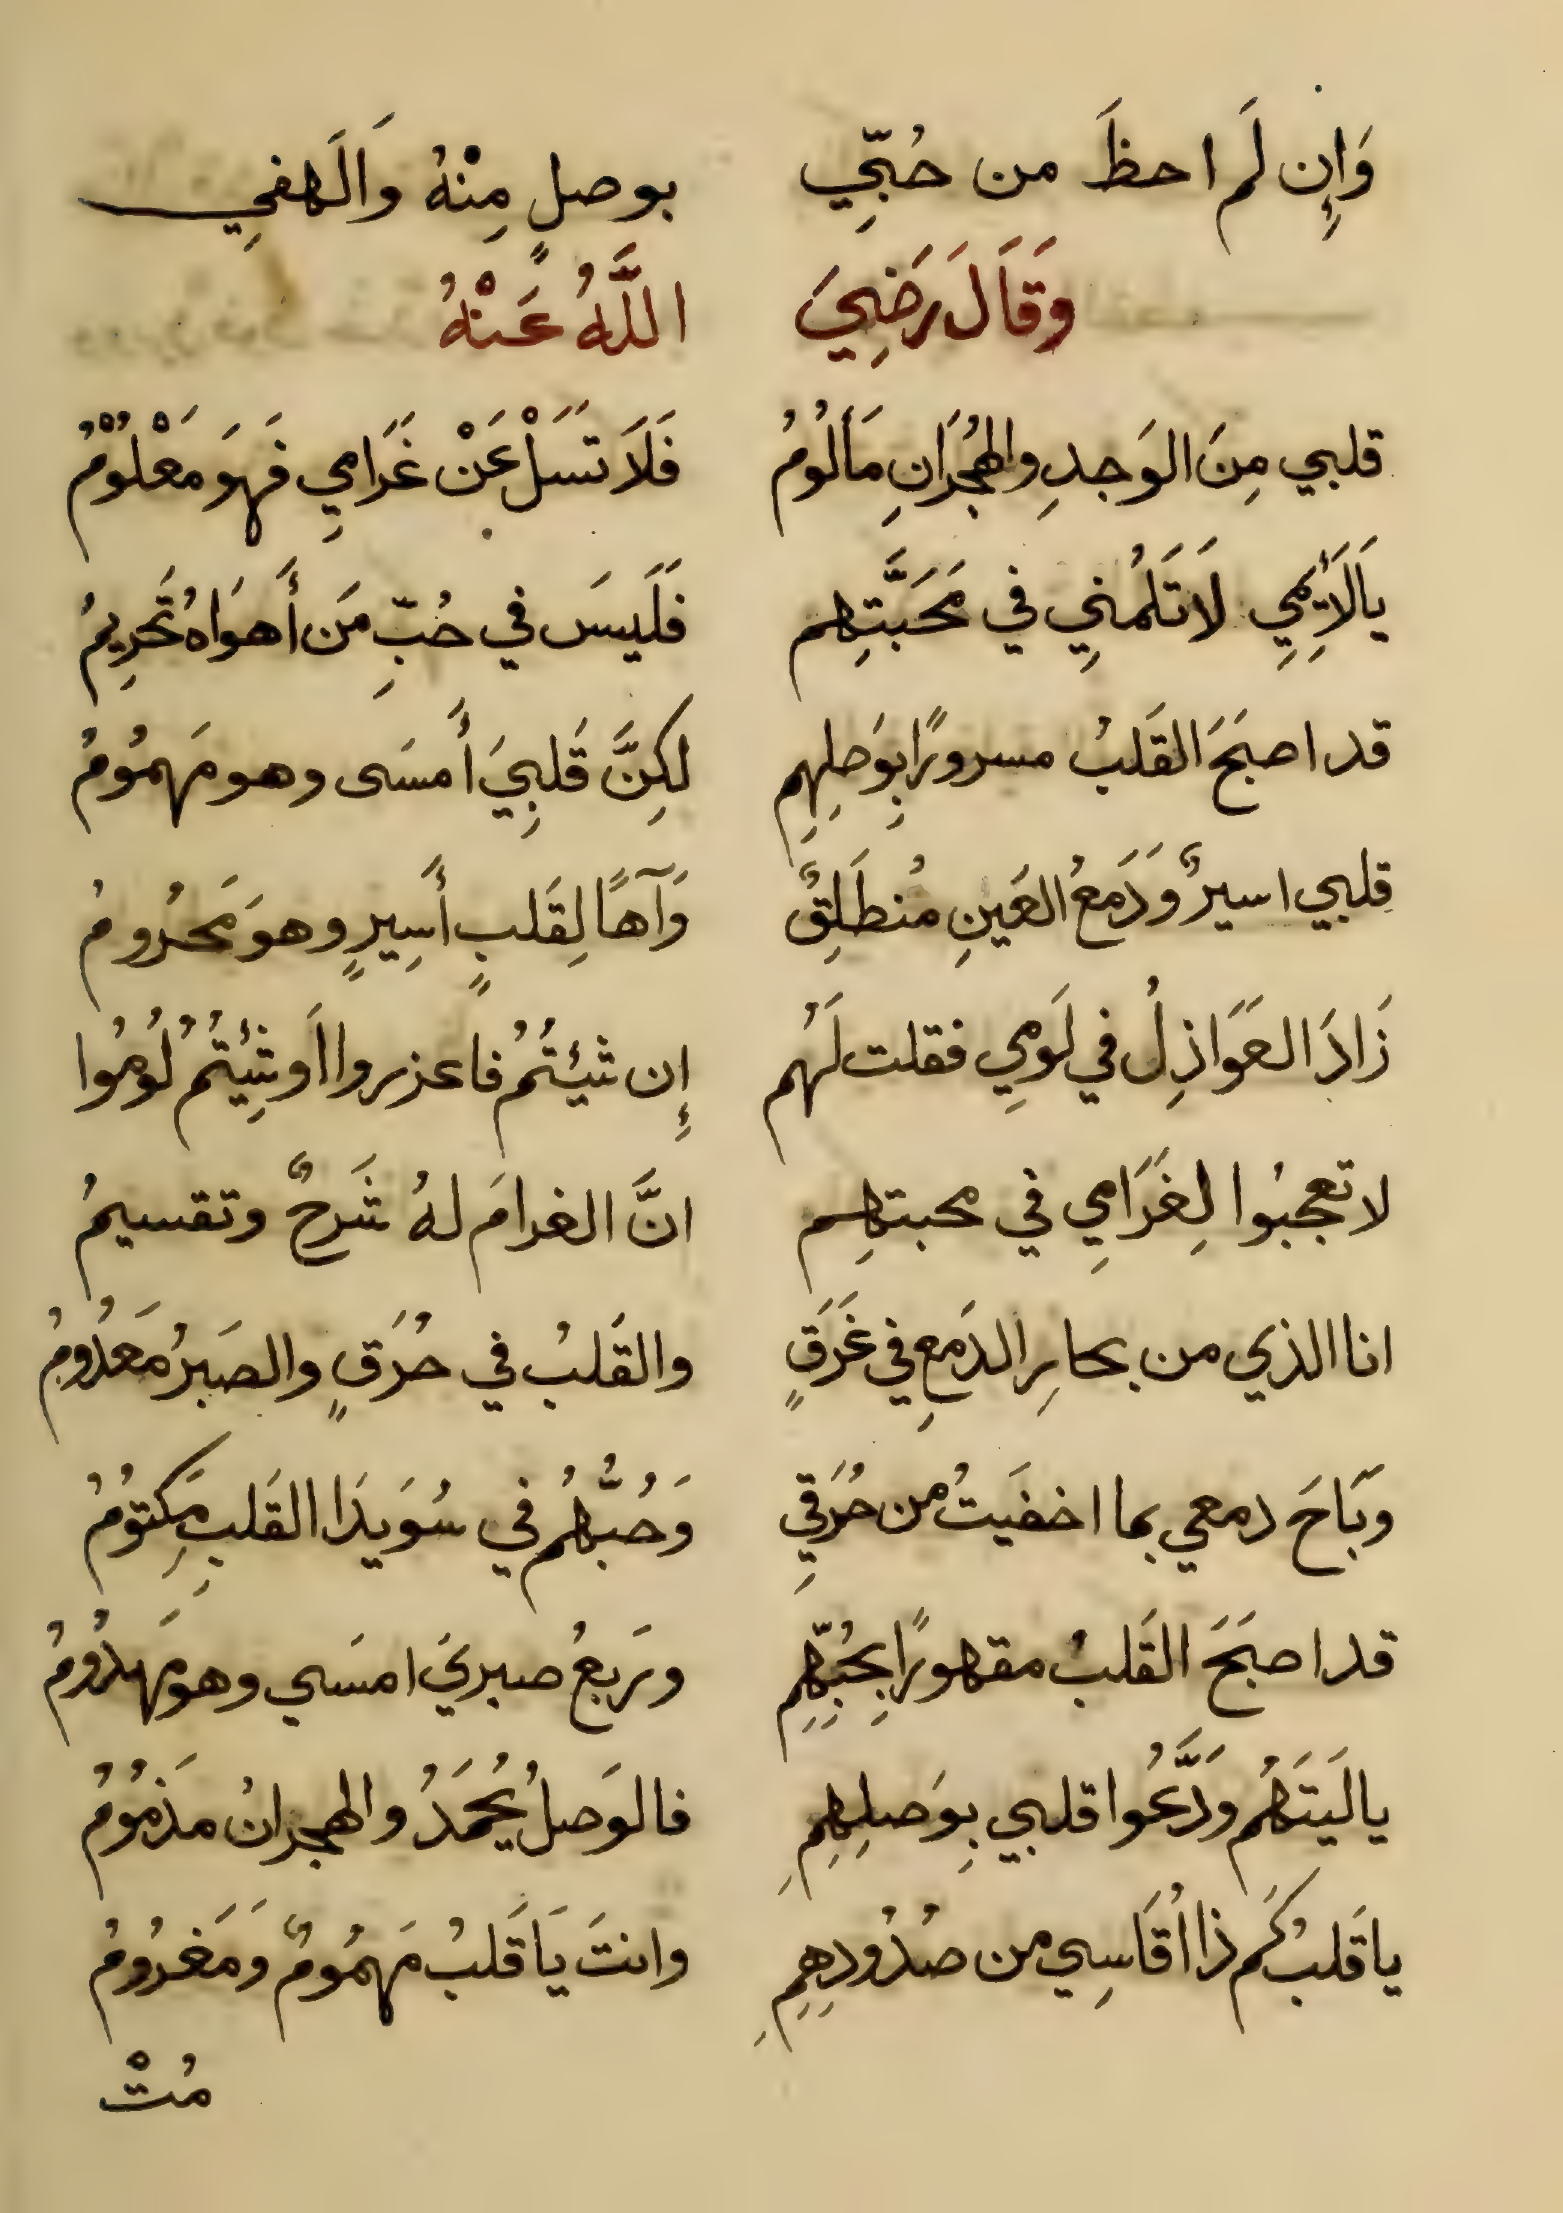 وَإِن لَم احظَ من حُبّي بوصلٍ مِنْهُ وَالَهفِي
وَقَالَ رَضِيَ اللَّهُ عَنْهُ
قلبي مِنَ الوَجدِ والهُجرَانِ مَألُومُ فَلَا تَسَلْ عَنْ غَرَامِي فَهوَ مَعْلُوْمُ
يالَائِمِي لَا تَلَمُنِي في مَحَبَّتِهم فَلَيسَ في حُبِّ مَن أَهوَاهُ تَحرِيمُ
قد اصبَحَ القَلبُ مسرورًا بِوَصلِهِم لكِنَّ قَلبِيَ أَمسَى وهو مَهمُومُ
قلبي اسيرٌ وَدَمعُ العَينِ مُنطَلِقٌ وَآهًا لِقَلبٍ أَسِيرٍ وهوَ مَحرُومُ
زَادَ العَوَاذِلُ في لَومِي فقلت لَهُم إِن شئتُمُ فاعزروا اَو شِئتُمُ لُومُوا
لا تعجبُوا لِغَرَامِي في محبتهِم انَّ الغرامَ لهُ شَرحٌ وتقسيمُ
انا الذي من بحارِ الدَمعِ في غَرَقٍ والقَلبُ في حُرَقٍ والصَبرُ مَعدُومُ
وَبَاحَ دمعي بما اخفَيتُ من حُرَقِي وَحُبُّهُمُ في سُوَيدَا القَلبِ مَكتُومُ
قد اصبَحَ القَلبُ مقهورًا بِحُبِّهِم ورَبعُ صبريَ امسَي وهو مَهدُومُ
يالَيتَهُم وَدَّعُوا قلبي بِوَصلِهِمِ فالوَصلُ يُحمَدُ والهجرانُ مذمُومُ
ياقَلبُ كَم ذا اُقَاسِي من صُدُودِهِمِ وانتَ يَاقَلبُ مَهمُومٌ وَمَغرُومُ
مُتْ